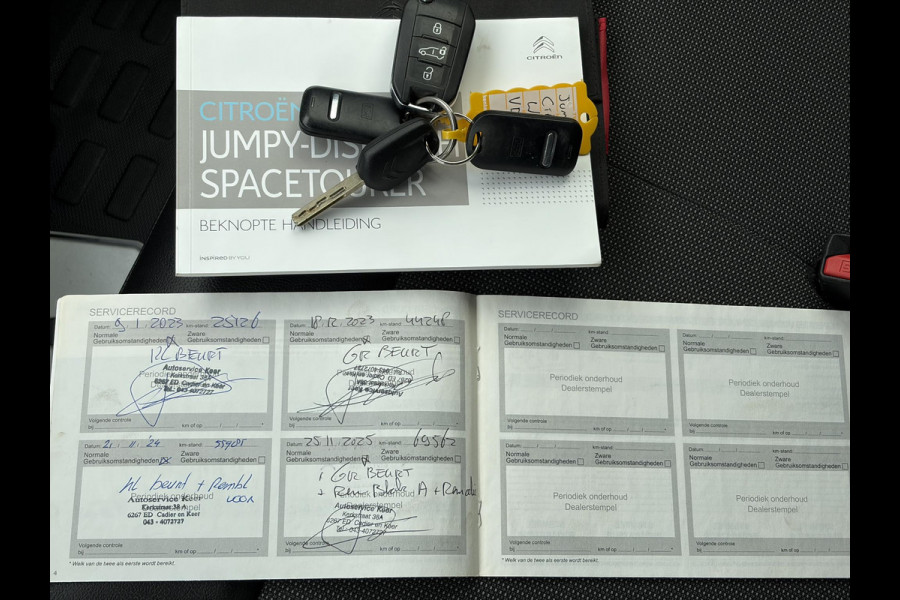 CITROËN
CITROËN
JUMPY-DIS
SPACETOURER
BEKNOPTE HANDLEIDING
INSPIRED BY YOU
SERVICERECORD
Datum: 9.1.2023 km-stand: 25126
Normale Gebruiksomstandigheden
Zware Gebruiksomstandigheden
KL BEURT
Autoservice Keer
Kerkstraat 38A
6267 ED Cadier en Keer
Tel.: 043-4072727
Volgende controle
bij km of op
Datum: 18.12.2023 km-stand: 44248
Normale Gebruiksomstandigheden
Zware Gebruiksomstandigheden
GR BEURT
Volgende controle
bij km of op
Datum: 21.11.'24 km-stand:
Normale Gebruiksomstandigheden
Zware Gebruiksomstandigheden
KL beurt +
VOOR
Periodiek onderhoud
Autoservice Keer
Kerkstraat 38 A
6267 ED Cadier en Keer
043 - 4072727
Volgende controle
bij km of op
* Welk van de twee als eerste wordt bereikt.
4
25.11.2025 69562
Normale Gebruiksomstandigheden
Zware Gebruiksomstandigheden
GR BEURT
Autoservice Keer
Kerkstraat 38A
6267 ED Cadier en Keer
Tel.: 043-4072727
Volgende controle
bij km of op
SERVICERECORD
Datum: km-stand:
Normale Gebruiksomstandigheden
Zware Gebruiksomstandigheden
Periodiek onderhoud
Dealerstempel
Volgende controle
bij km of op
Datum: km-stand:
Normale Gebruiksomstandigheden
Zware Gebruiksomstandigheden
Periodiek onderhoud
Dealerstempel
Volgende controle
bij km of op
Datum: km-stand:
Normale Gebruiksomstandigheden
Zware Gebruiksomstandigheden
Periodiek onderhoud
Dealerstempel
Volgende controle
bij km of op
* Welk van de twee als eerste wordt bereikt.
Datum: km-stand:
Normale Gebruiksomstandigheden
Zware Gebruiksomstandigheden
Periodiek onderhoud
Dealerstempel
Volgende controle
bij km of op